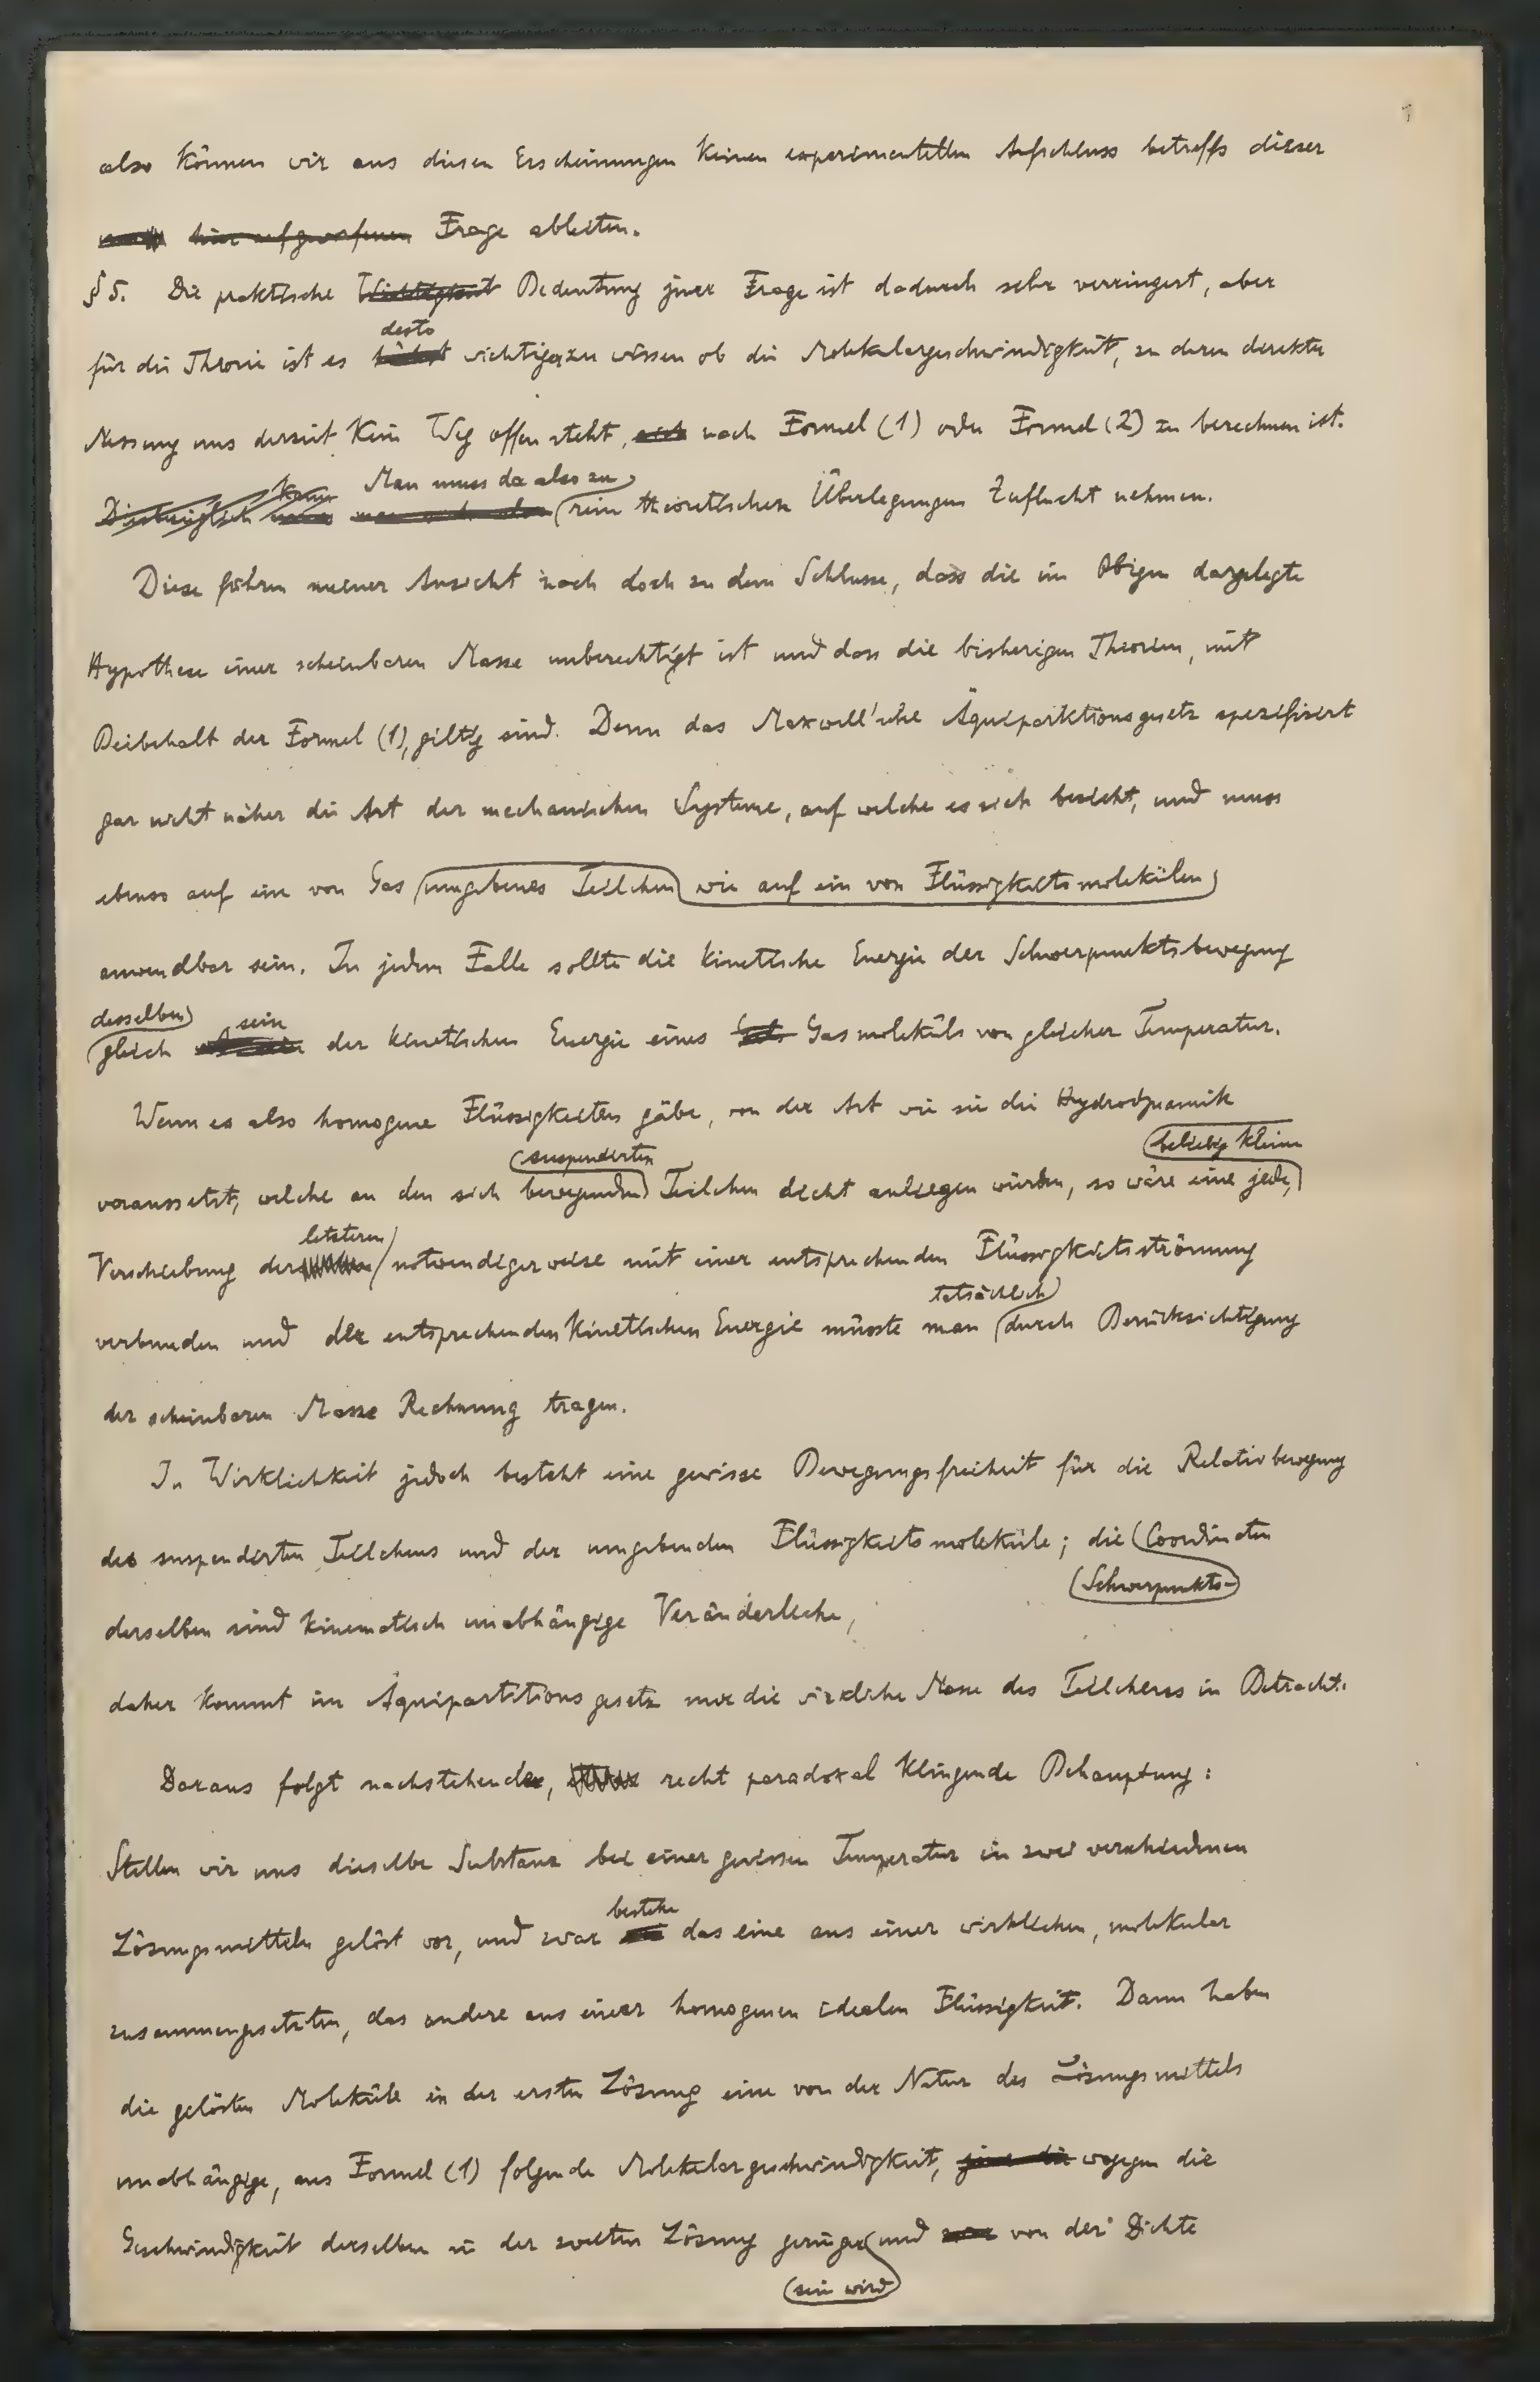 also können wir aus diesen Erscheinungen keinen experimentellen Aufschluss betreffs dieser
hier aufgeworfenen Frage ableiten.
§5. Die praktische Wichtigkeit Bedeutung jener Frage ist dadurch sehr verringert, aber
desto
für die Theorie ist es höchst wichtiger zu wissen ob die Molekulargeschwindigkeit, zu deren direkter
Messung uns derzeit kein Weg offen steht, sich nach Formel (1) oder Formel (2) zu berechnen ist.
kann Man muss da also zu
Diesbezüglich muss man sich also rein theoretischen Überlegungen Zuflucht nehmen.
Diese führen meiner Ansicht nach doch zu dem Schlusse, dass die im Obigen dargelegte
Hypothese einer scheinbaren Masse unberechtigt ist und dass die bisherigen Theorien, mit
Beibehalt der Formel (1), giltig sind. Denn das Maxwell'sche Äquipartitionsgesetz spezifiziert
gar nicht näher die Art der mechanischen Systeme, auf welche es sich bezieht, und muss
ebenso auf ein von Gas umgebenes Teilchen wie auf ein von Flüssigkeitsmolekülen
anwendbar sein. In jedem Falle sollte die kinetische Energie der Schwerpunktsbewegung
desselben sein
gleich der kinetischen Energie eines Gasmoleküls von gleicher Temperatur.
Wenn es also homogene Flüssigkeiten gäbe, von der Art wie sie die Hydrodynamik
suspendierten beliebig kleine
voraussetzt, welche an den sich bewegenden Teilchen dicht anliegen würden, so wäre eine jede,
letzteren
Verschiebung der notwendigerweise mit einer entsprechenden Flüssigkeitsströmung
tatsächlich
verbunden und der entsprechenden kinetischen Energie müsste man durch Berücksichtigung
der scheinbaren Masse Rechnung tragen.
In Wirklichkeit jedoch besteht eine gewisse Bewegungsfreiheit für die Relativbewegung
des suspendierten Teilchens und der umgebenden Flüssigkeitsmoleküle; die Coordinaten
Schwerpunkts-
derselben sind kinematisch unabhängige Veränderliche,
daher kommt im Äquipartitionsgesetz nur die wirkliche Masse des Teilchens in Betracht.
Daraus folgt nachstehende, recht paradoxal klingende Behauptung:
Stellen wir uns dieselbe Substanz bei einer gewissen Temperatur in zwei verschiedenen
bestehe
Lösungsmitteln gelöst vor, und zwar das eine aus einer wirklichen, molekular
zusammengesetzten, das andere aus einer homogenen idealen Flüssigkeit. Dann haben
die gelösten Moleküle in der ersten Lösung eine von der Natur des Lösungsmittels
unabhängige, aus Formel (1) folgende Molekulargeschwindigkeit, jene die wogegen die
Geschwindigkeit derselben in der zweiten Lösung geringer und zwar von der Dichte
sein wird